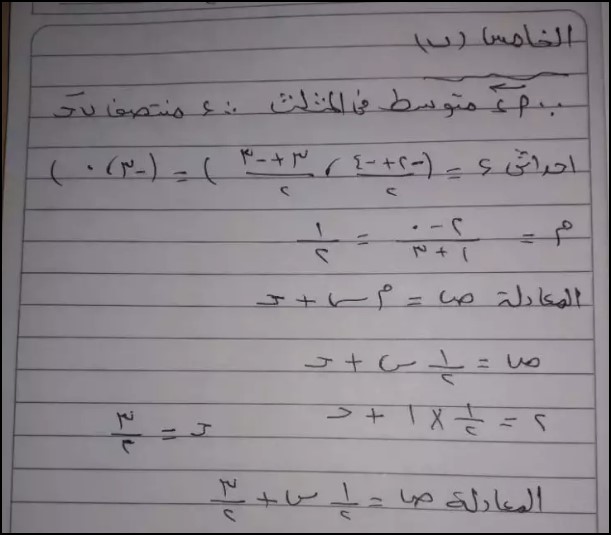 الخامس (ب)
∵ أء متوسط فى المثلث ∴ ء منتصف ب جـ
احداثى ء = (-٢+-٤/٢ ، ٣+-٣/٢) = (-٣، ٠)
م = ٢-٠/١+٣ = ١/٢
المعادلة ص = م س + جـ
ص = ١/٢ س + جـ
٢ = ١/٢ × ١ + جـ جـ = ٣/٢
المعادلة ص = ١/٢ س + ٣/٢